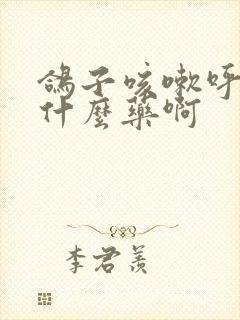 鴿子咳嗽呼
什麼藥啊
李君羨